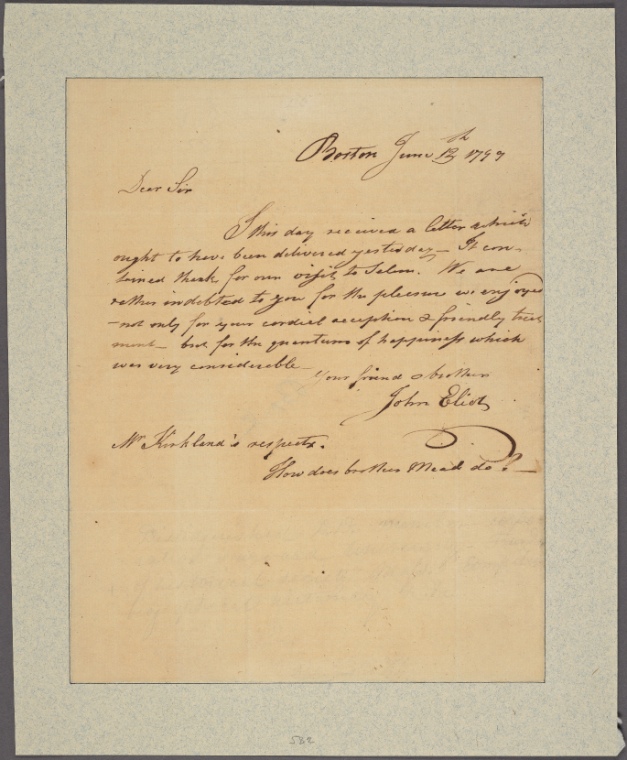 Boston June 13th 1799
Dear Sir
I this day received a letter which
ought to have been delivered yesterday — It con-
tained thanks for our visit to Salem. We are
rather indebted to you for the pleasure we enjoyed
— not only for your cordial reception & friendly treat
ment — but for the quantum of happiness which
was very considerable —
Your friend & brother
John Eliot
Mr Kirkland's respects.
How does brother Mead do? —
582